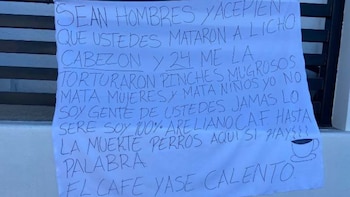 SEAN HOMBRES Y ACEPTEN
QUE USTEDES MATARON A LICHO
CABEZON Y 24 ME LA
TORTURARON PINCHES MUGROSOS
MATA MUJERES Y MATA NIÑOS YO NO
SOY GENTE DE USTEDES JAMAS LO
SERE SOY 100% ARELLANO CAF HASTA
LA MUERTE PERROS AQUI SI HAY!!!
PALABRA
EL CAFE YASE CALENTO